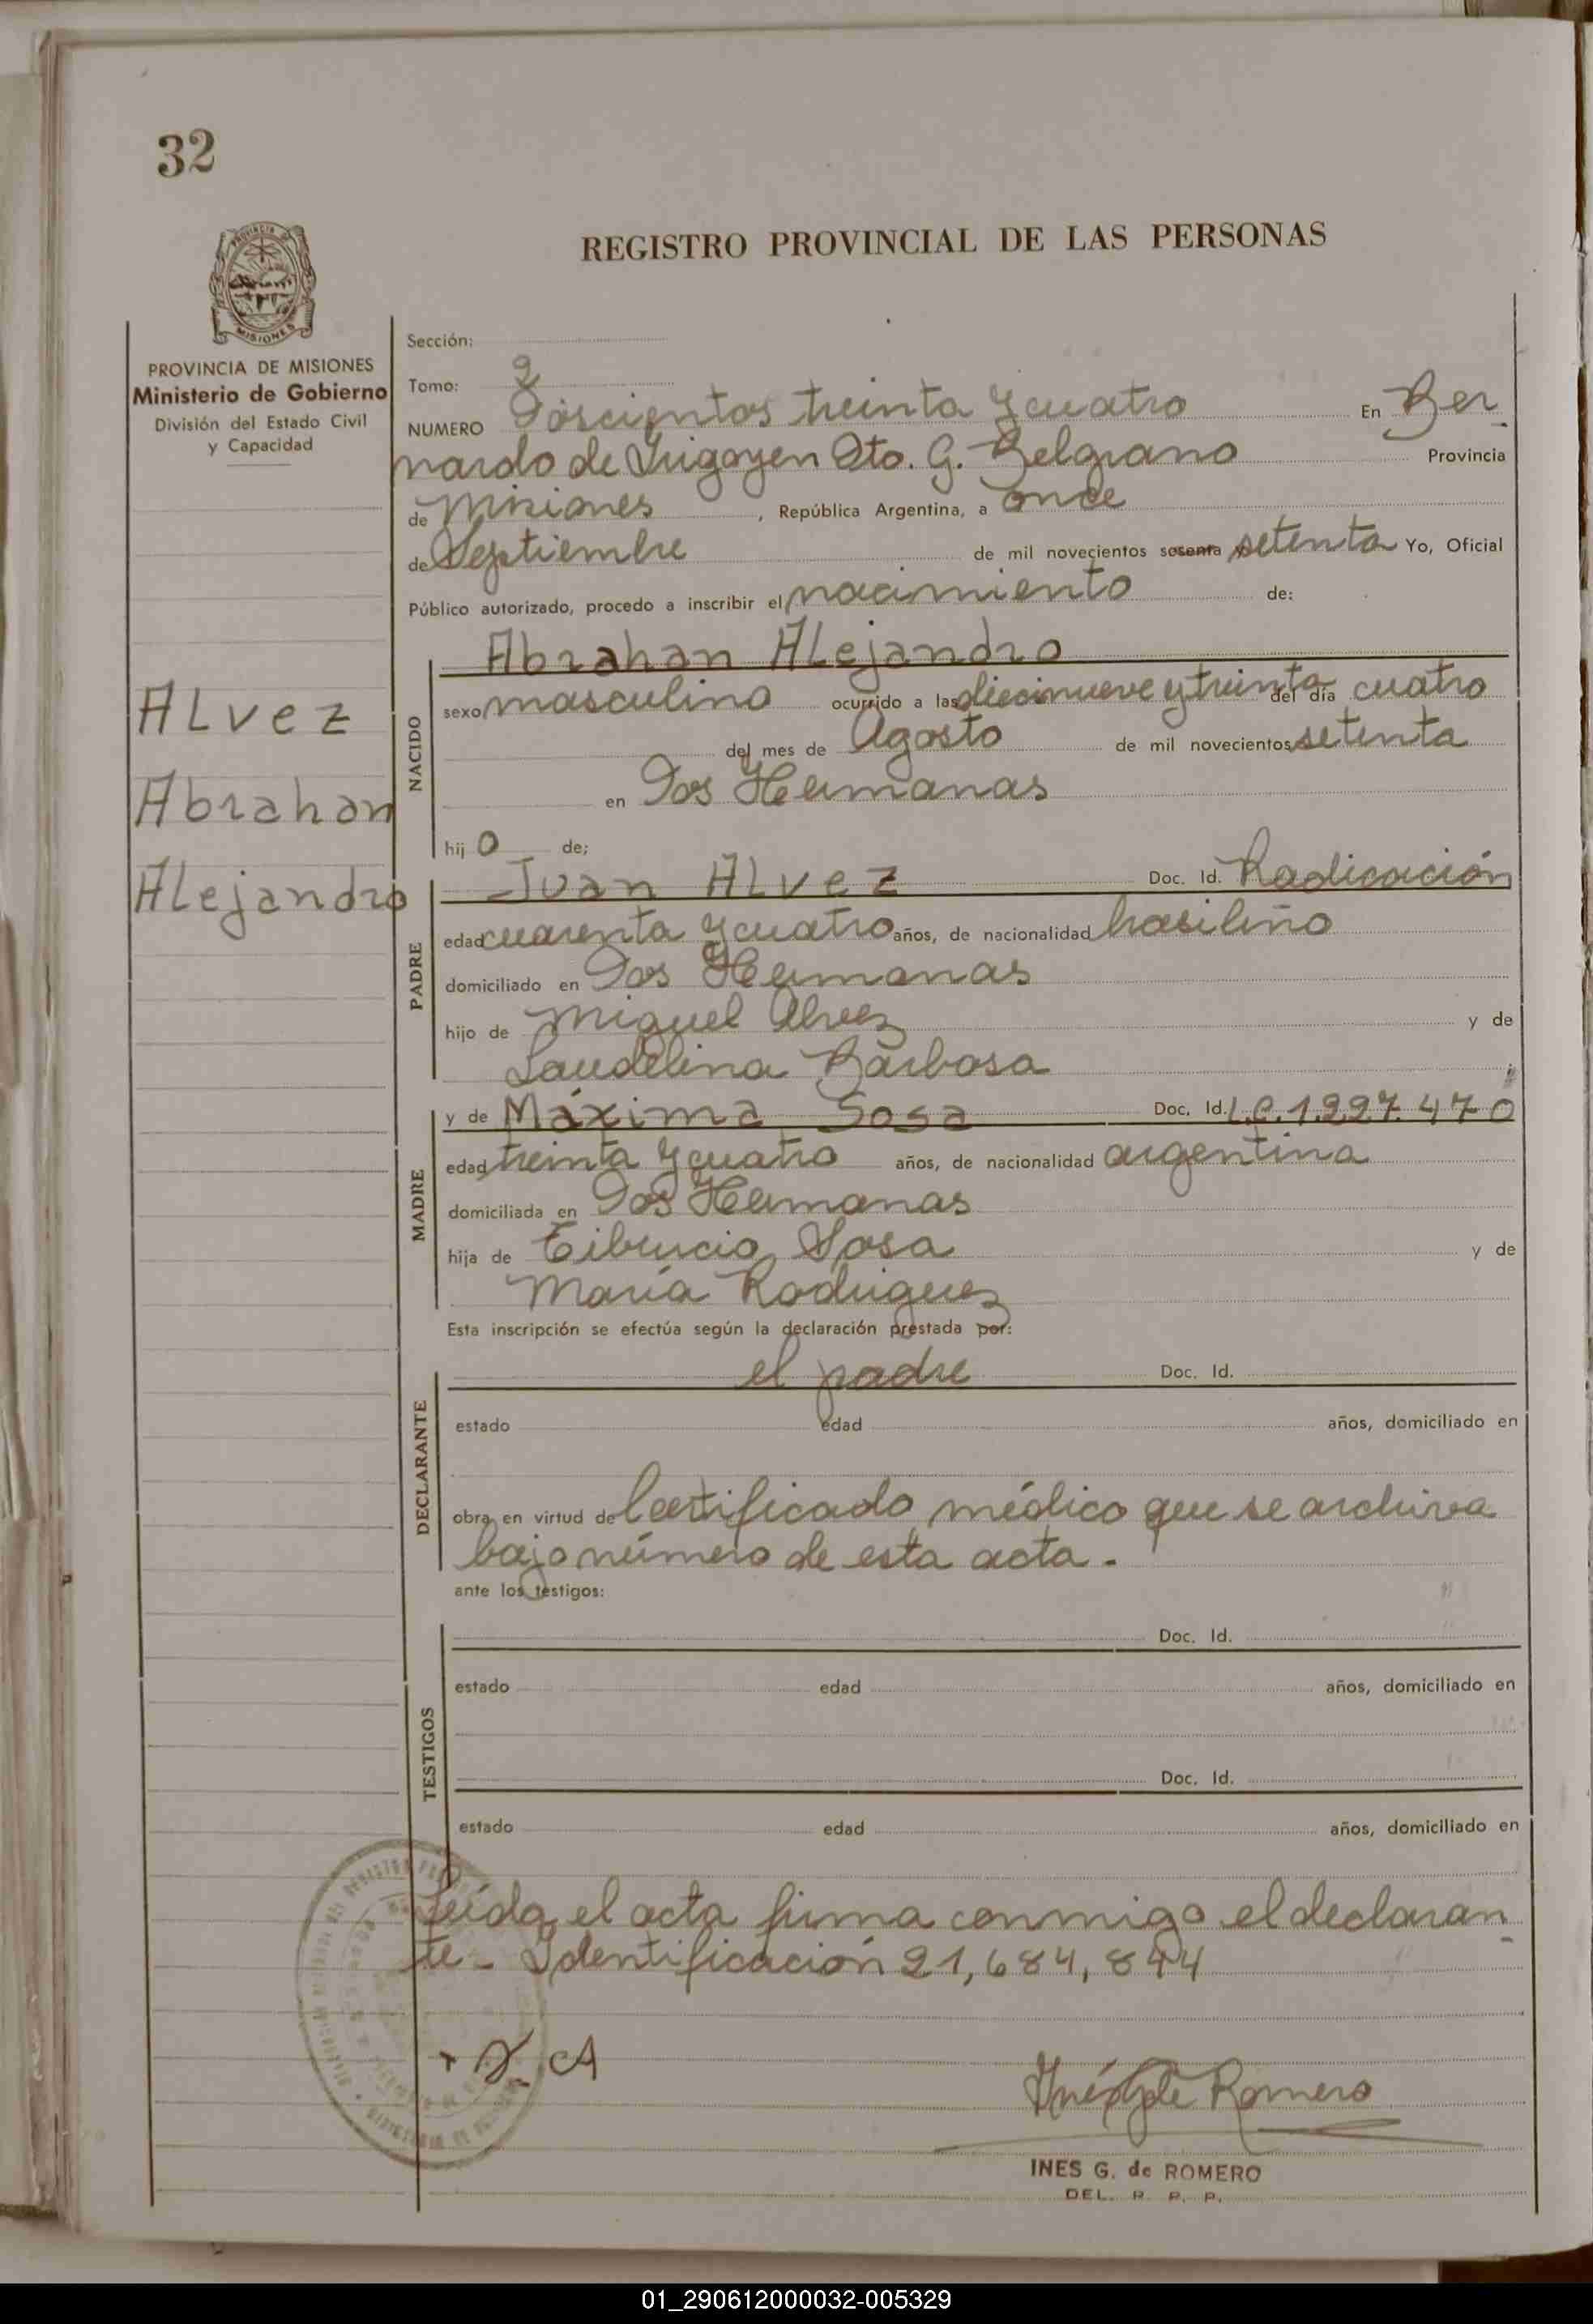 32
REGISTRO PROVINCIAL DE LAS PERSONAS
MISIONES
PROVINCIA DE MISIONES
Ministerio de Gobierno
División del Estado Civil
y Capacidad
ALvez
Abrahan
ALejandro
Sección:
Tomo: 2
NUMERO Doscientos treinta y cuatro En Ber
nardo de Irigoyen Dto. G. Belgrano Provincia
de Misiones, República Argentina, a once
de Septiembre de mil novecientos sesenta setenta Yo, Oficial
Público autorizado, procedo a inscribir el nacimiento de:
NACIDO
Abrahan ALejandro
sexo masculino ocurrido a las diecinueve y treinta del día cuatro
del mes de Agosto de mil novecientos setenta
en Dos Hermanas
hij o de;
PADRE
Juan ALvez Doc. Id. Radicación
edad cuarenta y cuatro años, de nacionalidad brasileño
domiciliado en Dos Hermanas
hijo de Miguel Alvez y de
Laudelina Barbosa
MADRE
y de Máxima Sosa Doc. Id. L.C. 1.227.470
edad treinta y cuatro años, de nacionalidad argentina
domiciliada en Dos Hermanas
hija de Tiburcio Sosa y de
María Rodriguez
Esta inscripción se efectúa según la declaración prestada por:
DECLARANTE
el padre Doc. Id.
estado edad años, domiciliado en
obra en virtud de Certificado médico que se archiva
bajo número de esta acta.
ante los testigos:
TESTIGOS
Doc. Id.
estado edad años, domiciliado en
Doc. Id.
estado edad años, domiciliado en
Leída el acta firma conmigo el declaran
te - Identificación 21,684,844
Inés G de Romero
INES G. de ROMERO
DEL. R. P. P.
01_290612000032-005329